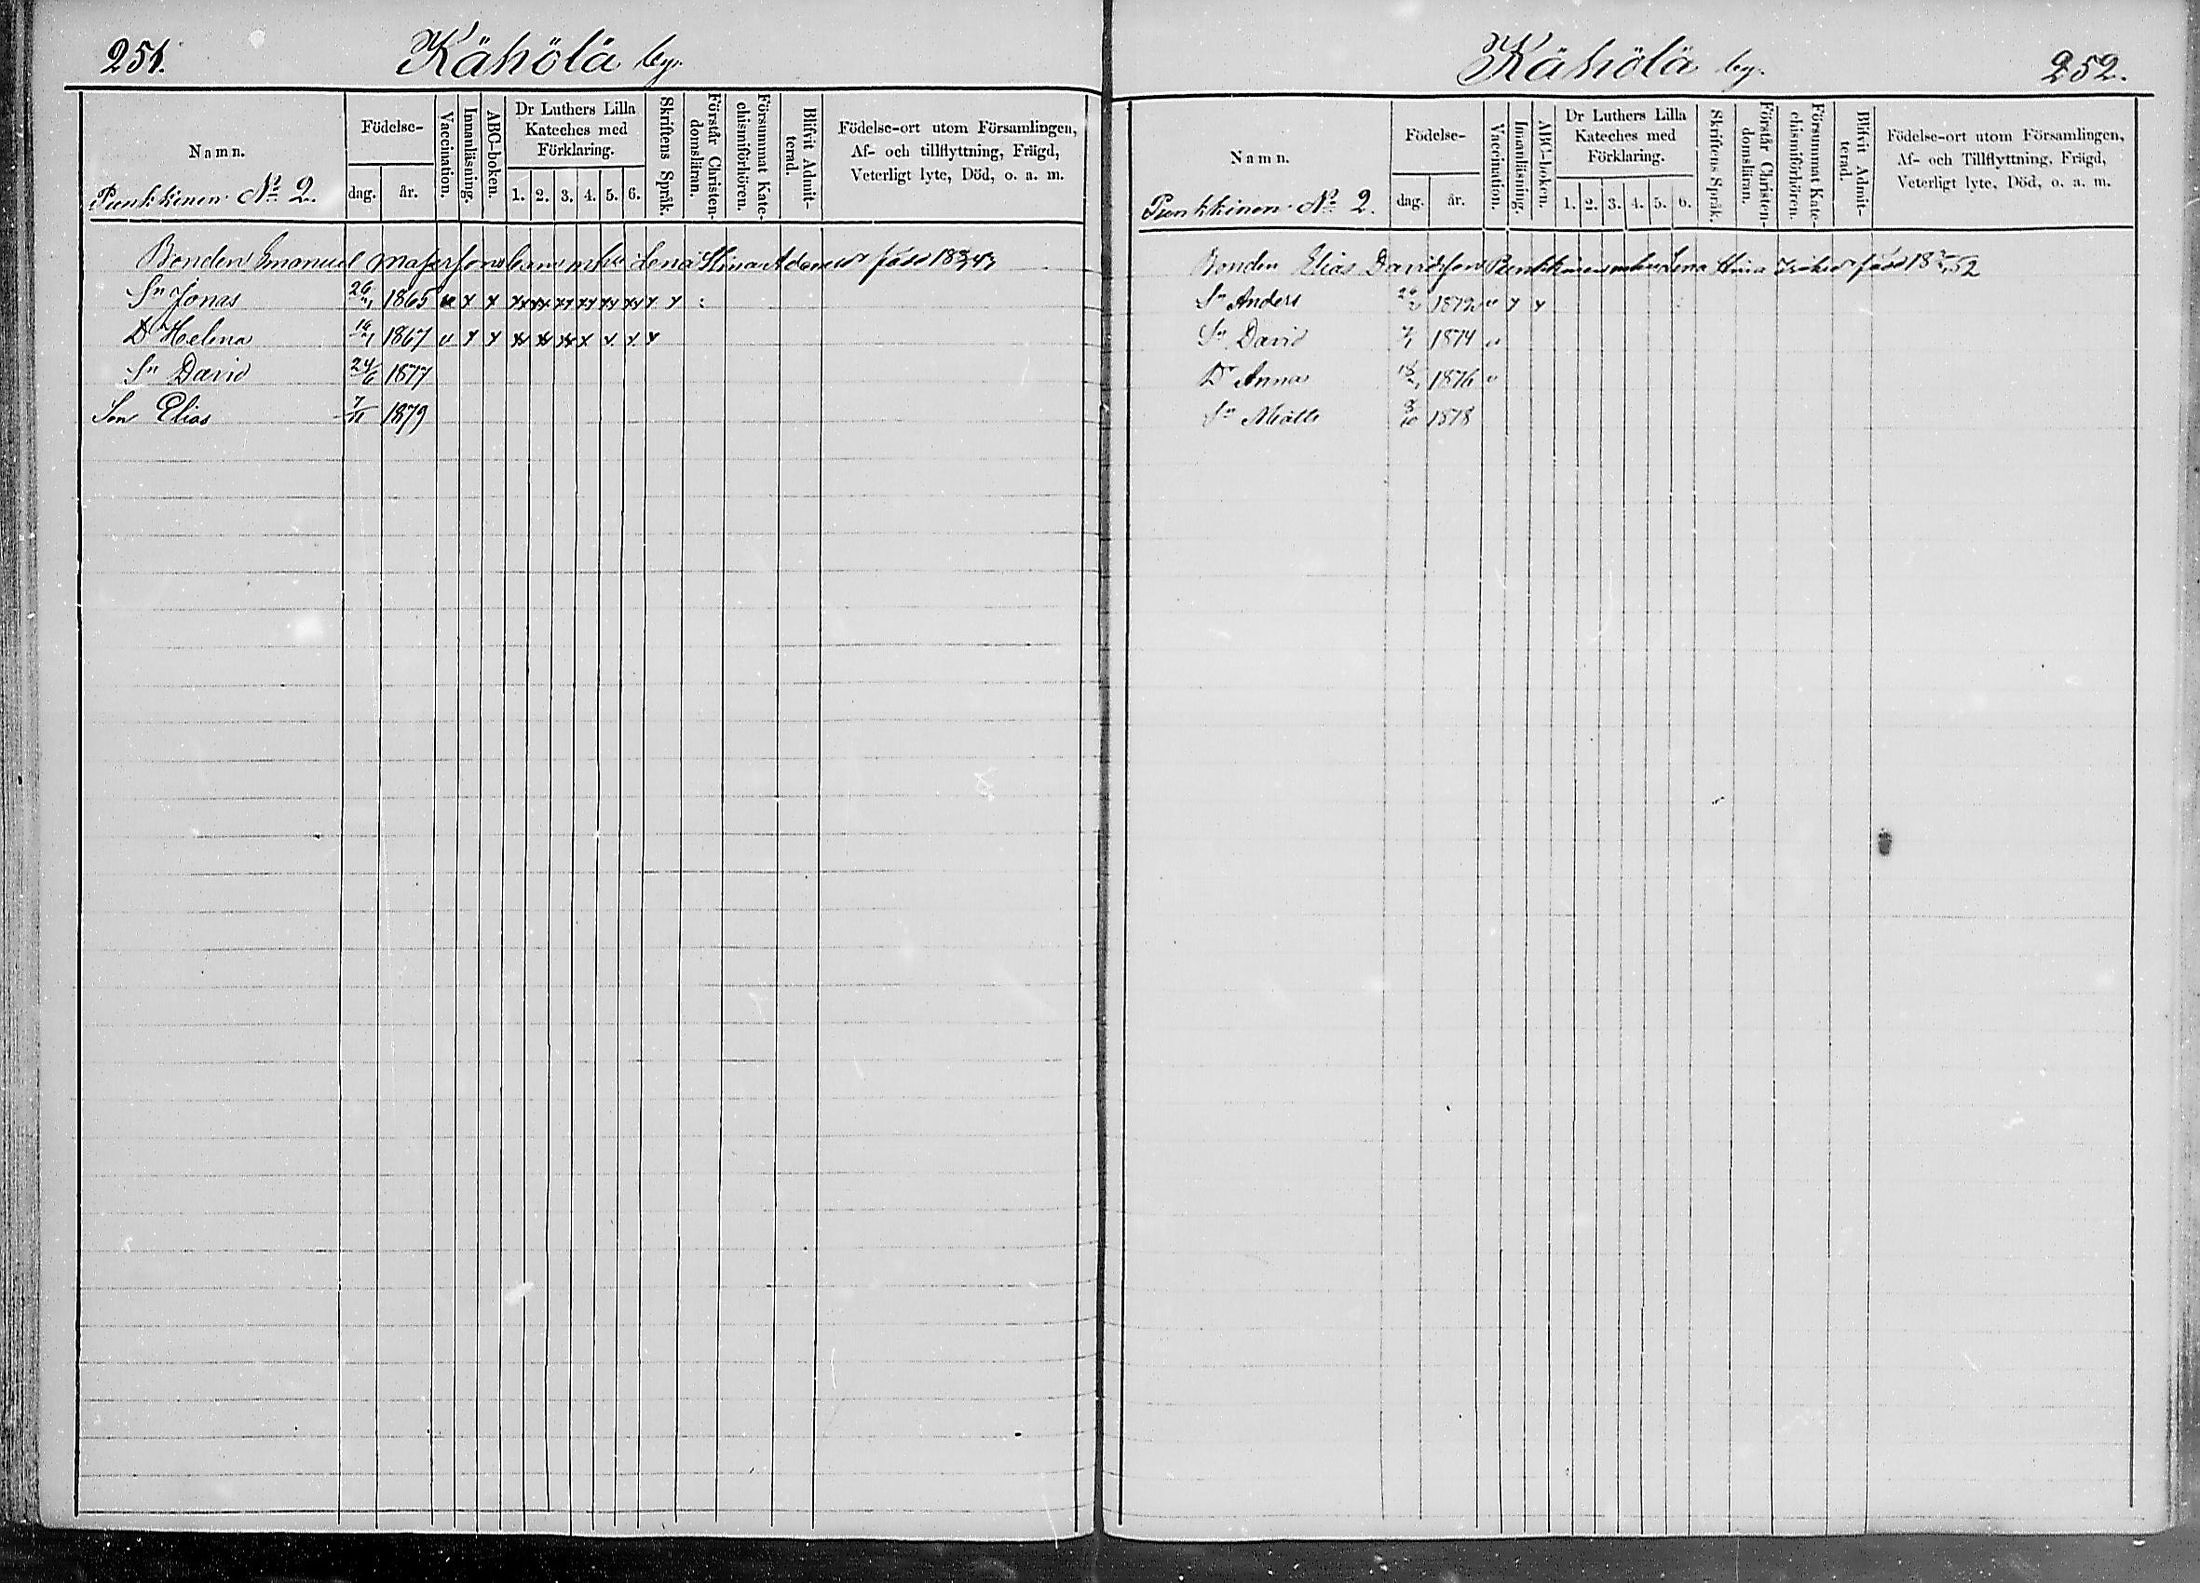 251.
Kähölä by.
Namn.
Födelse-
dag.
år.
Vaccination.
Innanläsning.
ABC-boken.
Dr Luthers Lilla
Kateches med
Förklaring.
1. 2. 3. 4. 5. 6.
Skriftens Språk.
Förstår Christen-
domsläran.
Försummat Kate-
chismiförhören.
Blifvit Admit-
terad.
Födelse-ort utom Församlingen,
Af- och tillflyttning, Frägd,
Veterligt lyte, Död, o. a. m.
Punkkinen No 2.
Bonden Emanuel Lena Stina
Sn Jonas 1865 x x
Dr Helena 1867 v x x
Sn David 24/6 1877
Son Elias 7/11 1879
Kähölä by.
252.
Namn.
Födelse-
dag.
år.
Vaccination.
Innanläsning.
ABC-boken.
Dr Luthers Lilla
Kateches med
Förklaring.
1. 2. 3. 4. 5. 6.
Skriftens Språk.
Förstår Christen-
domsläran.
Försummat Kate-
chismiförhören.
Blifvit Admit-
terad.
Födelse-ort utom Församlingen,
Af- och Tillflyttning, Frägd,
Veterligt lyte, Död, o. a. m.
Punkkinen No 2.
Bonden Elias Davidsson Punkkinens Lena Stina
Sn Anders 1872 v x x
Sn David 1874 v
Dr Anna 1876 v
Sn 1878